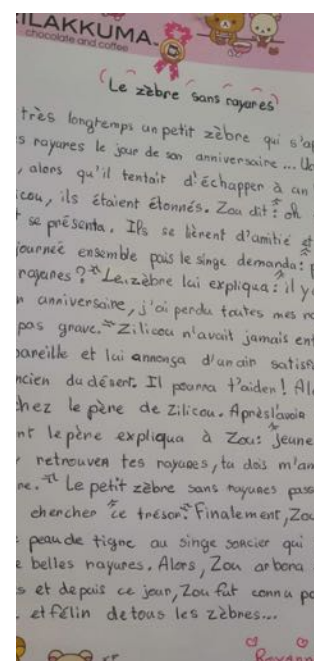 ILAKKUMA
chocolate and coffee
(Le zèbre sans rayures)
très longtemps un petit zèbre qui s'ap
s rayures le jour de son anniversaire... Un
, alors qu'il tentait d'échapper à un
icou, ils étaient étonnés. Zou dit : oh
se présenta. Ils se lièrent d'amitié et
journée ensemble puis le singe demanda :
rayures ? Le zèbre lui expliqua : il y
n anniversaire, j'ai perdu toutes mes ra
pas grave. Zilicou n'avait jamais ent
pareille et lui annonça d'un air satisf
ncien du désert. Il pourra t'aider ! Al
chez le père de Zilicou. Après l'avoir
nt le père expliqua à Zou : jeune
retrouver tes rayures, tu dois m'am
ne. Le petit zèbre sans rayures pass
chercher ce trésor. Finalement, Zou
peau de tigre au singe sorcier qui
e belles rayures. Alors, Zou arbora
s et depuis ce jour, Zou fut connu po
et félin de tous les zèbres...